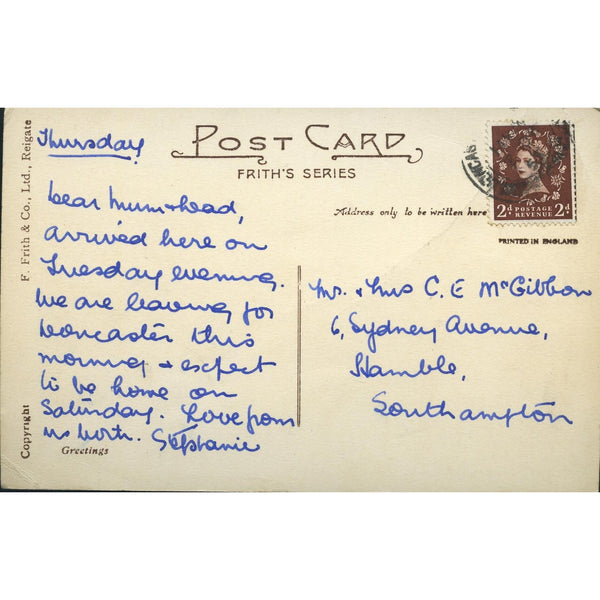 Thursday
POST CARD
FRITH'S SERIES
Dear Mum & Dad,
arrived here on
Tuesday evening.
We are leaving for
Doncaster this
morning & expect
to be home on
Saturday. Love from
us both. Stephanie
Greetings
Copyright
F. Frith & Co., Ltd., Reigate
Address only to be written here
2d POSTAGE REVENUE 2d
PRINTED IN ENGLAND
Mr. & Mrs C. E McGibbon
6, Sydney Avenue,
Hamble,
Southampton